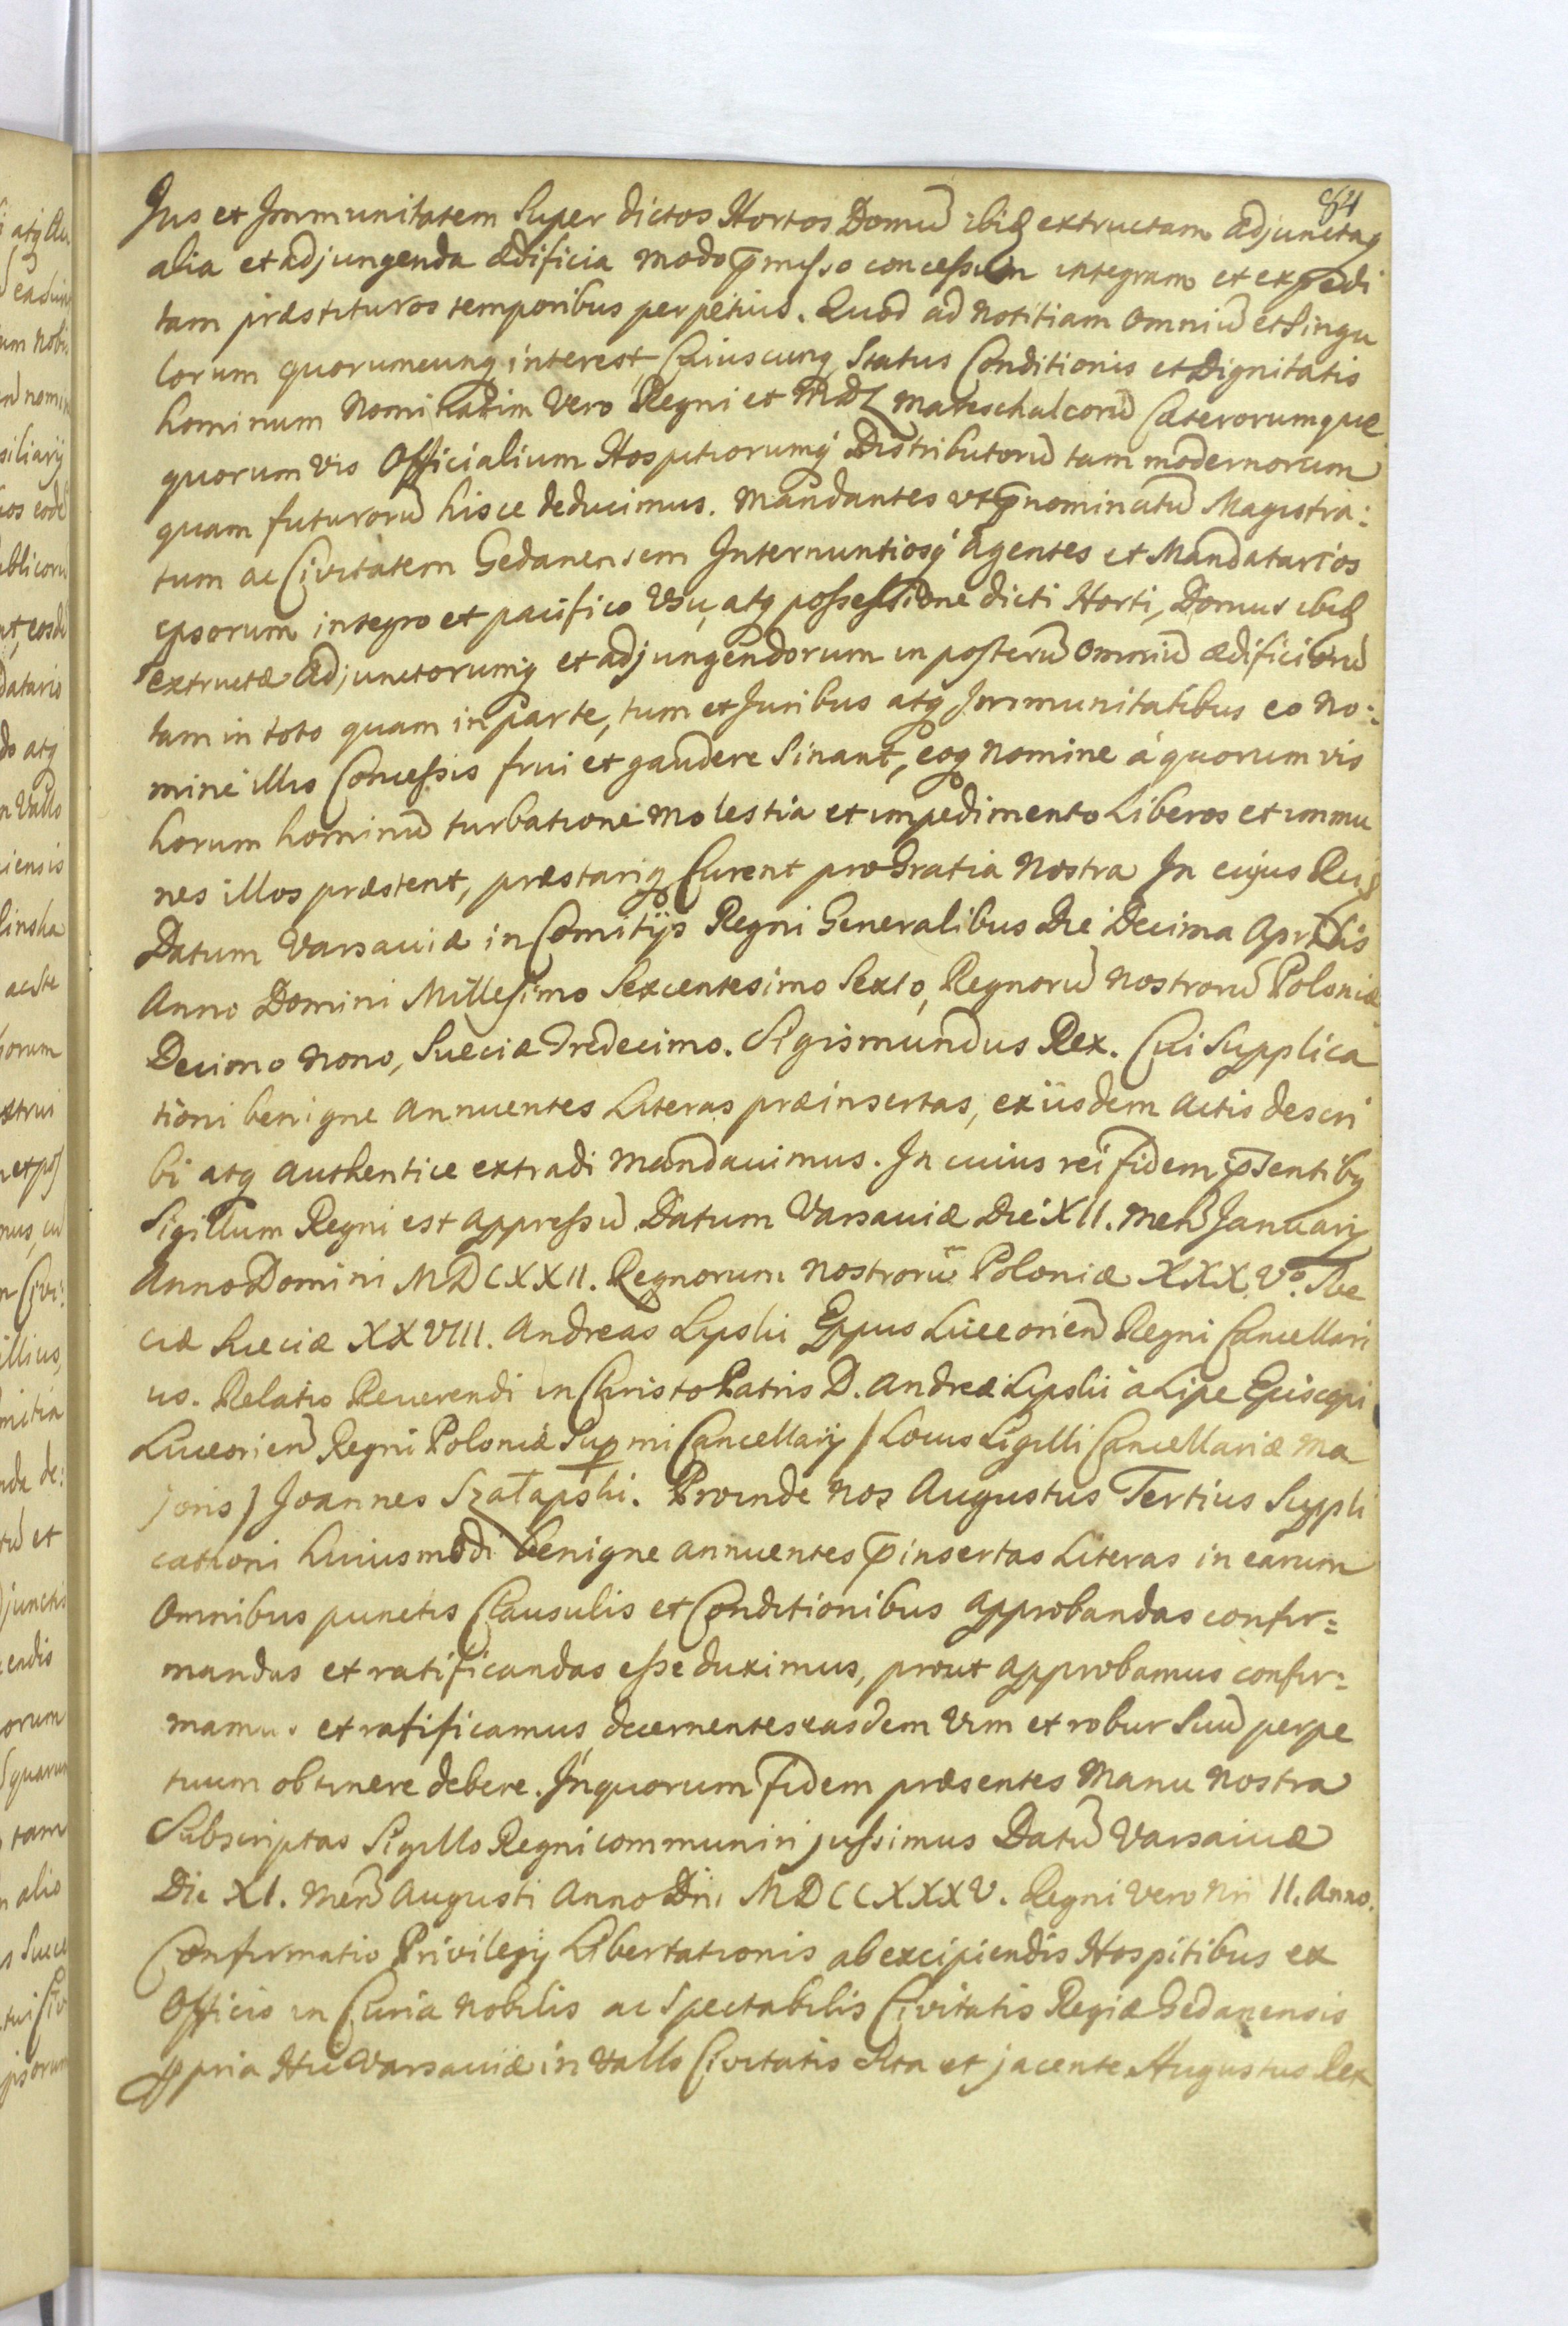 84
Jus et Immunitatem super dictos Hortos Domũ ibiđ extructam adjunctaq
alia et adjungenda ædificia modo p̄misso concessum integram et expedi
tam præstituros temporibus perpetuis. Quod ad notitiam omniũ et singu
lorum quorumcunq interest, Cuiuscunq Status Conditionis et Dignitatis
hominum Nominatim vero Regni et MDL mareschalcorũ Cæterorumque
quorumvis Officialium Hospitiorumq Distributorũ tam modernorum
quam futurorũ hisce deducimus. Mandantes vt p̄nominatũ Magistra:
tum ac Civitatem Gedanensem Internuntiosq Agentes et Mandatarios
ipsorum integro et pacifico Vsu, atq possessione dicti Horti, Domus ibiđ
extructæ Adjunctorumq et adjungendorum in posterũ omniũ ædificiorũ
tam in toto quam in parte, tum et Juribus atq Immunitatibus eo No:
mine illis Concessis frui et gaudere sinant, eoq nomine à quorumvis
horum hominũ turbatione molestia et impedimento Liberos et immu
nes illos præstent, præstariq Curent pro Gratia Nostra In cujus Rei
Datum Varsaviæ in Comitijs Regni Generalibus Die Decima Aprilis
Anno Domini Millesimo Sexcentesimo Sexto, Regnorũ Nostrorũ Poloniæ
Decimo Nono, Sueciæ Tredecimo. Sigismundus Rex. Cui Supplica
tioni benigne Annuentes Literas præinsertas, ex iisdem Actis descri
bi atq authentice extradi Mandavimus. In cuius rei fidem p̄sentibq
Sigillum Regni est appressũ Datum Varsaviæ Die XII. Men̄ Januarij
Anno Domini MDCXXII. Regnorum Nostrorũ Poloniæ XXXVº. Sue
ciæ Sueciæ XXVIII. Andreas Lipski Eppus Luceorien̄ Regni Cancellari
us. Relatio Reverendi in Christo Patris D. Andreæ Lipskii à Lipe Episcopi
Luceorien̄ Regni Poloniæ Supmi Cancellarij / Locus Sigilli Cancellariæ Ma
joris / Joannes Szałapski. Proinde Nos Augustus Tertius Suppli
cationi huiusmodi benigne annuentes p̄insertas Literas in earum
Omnibus punctis Clausulis et Conditionibus approbandas confir=
mandas et ratificandas esse duximus, prout approbamus confir=
mamus et ratificamus decernentes easdem Vim et robur suũ perpe
tuum obtinere debere. In quorum fidem præsentes Manu Nostra
Subscriptas Sigillo Regni communiri jussimus Datũ Varsaviæ
Die XI. Men̄ Augusti Anno Dni MDCCXXXV. Regni Vero Nri II. Anno.
Confirmatio Privilegij Libertationis ab excipiendis Hospitibus ex
Officio in Curia Nobilis ac Spectabilis Civitatis Regiæ Gedanensis
ppria Hic Varsaviæ in Vallo Civitatis sita et jacente Augustus Rex